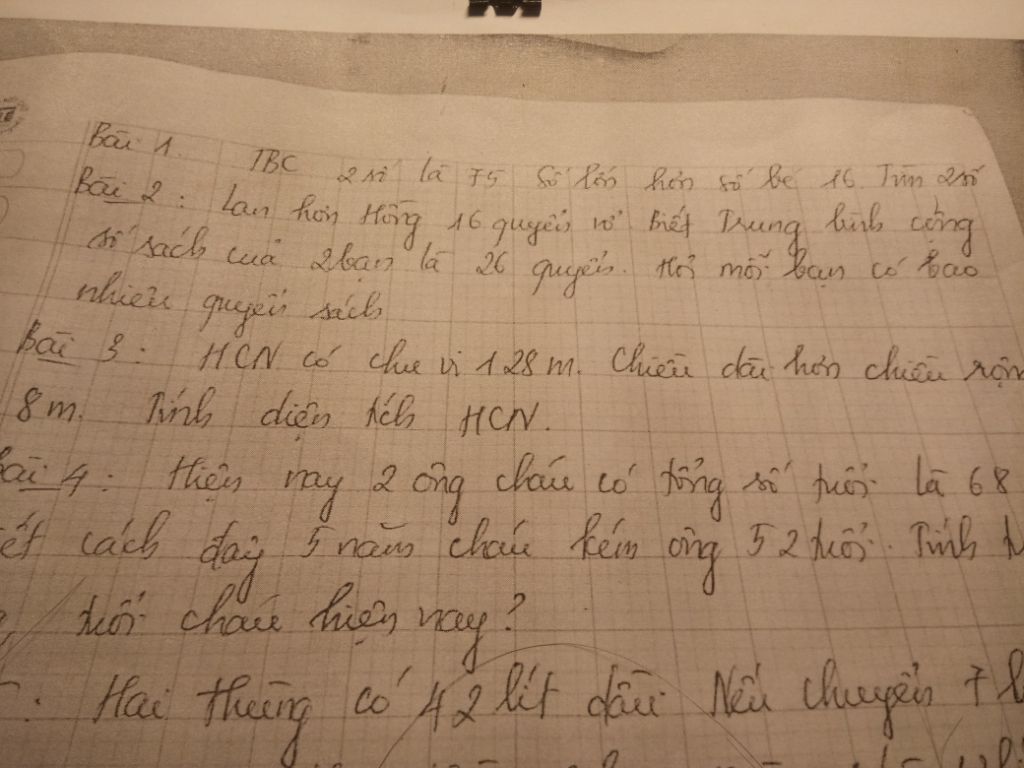 Bài 1. TBC 2 số là 75 Số lớn hơn số bé 16. Tìm 2 số
Bài 2 : Lan hơn Hồng 16 quyển vở biết Trung bình cộng
số sách của 2 bạn là 26 quyển. Hỏi mỗi bạn có bao
nhiêu quyển sách
Bài 3 : HCN có chu vi 128 m. Chiều dài hơn chiều rộn
8 m. Tính diện tích HCN.
Bài 4 : Hiện nay 2 ông cháu có tổng số tuổi là 68
cách đây 5 năm cháu kém ông 52 tuổi. Tính
tuổi cháu hiện nay?
: Hai thùng có 42 lít dầu. Nếu chuyển 7 l